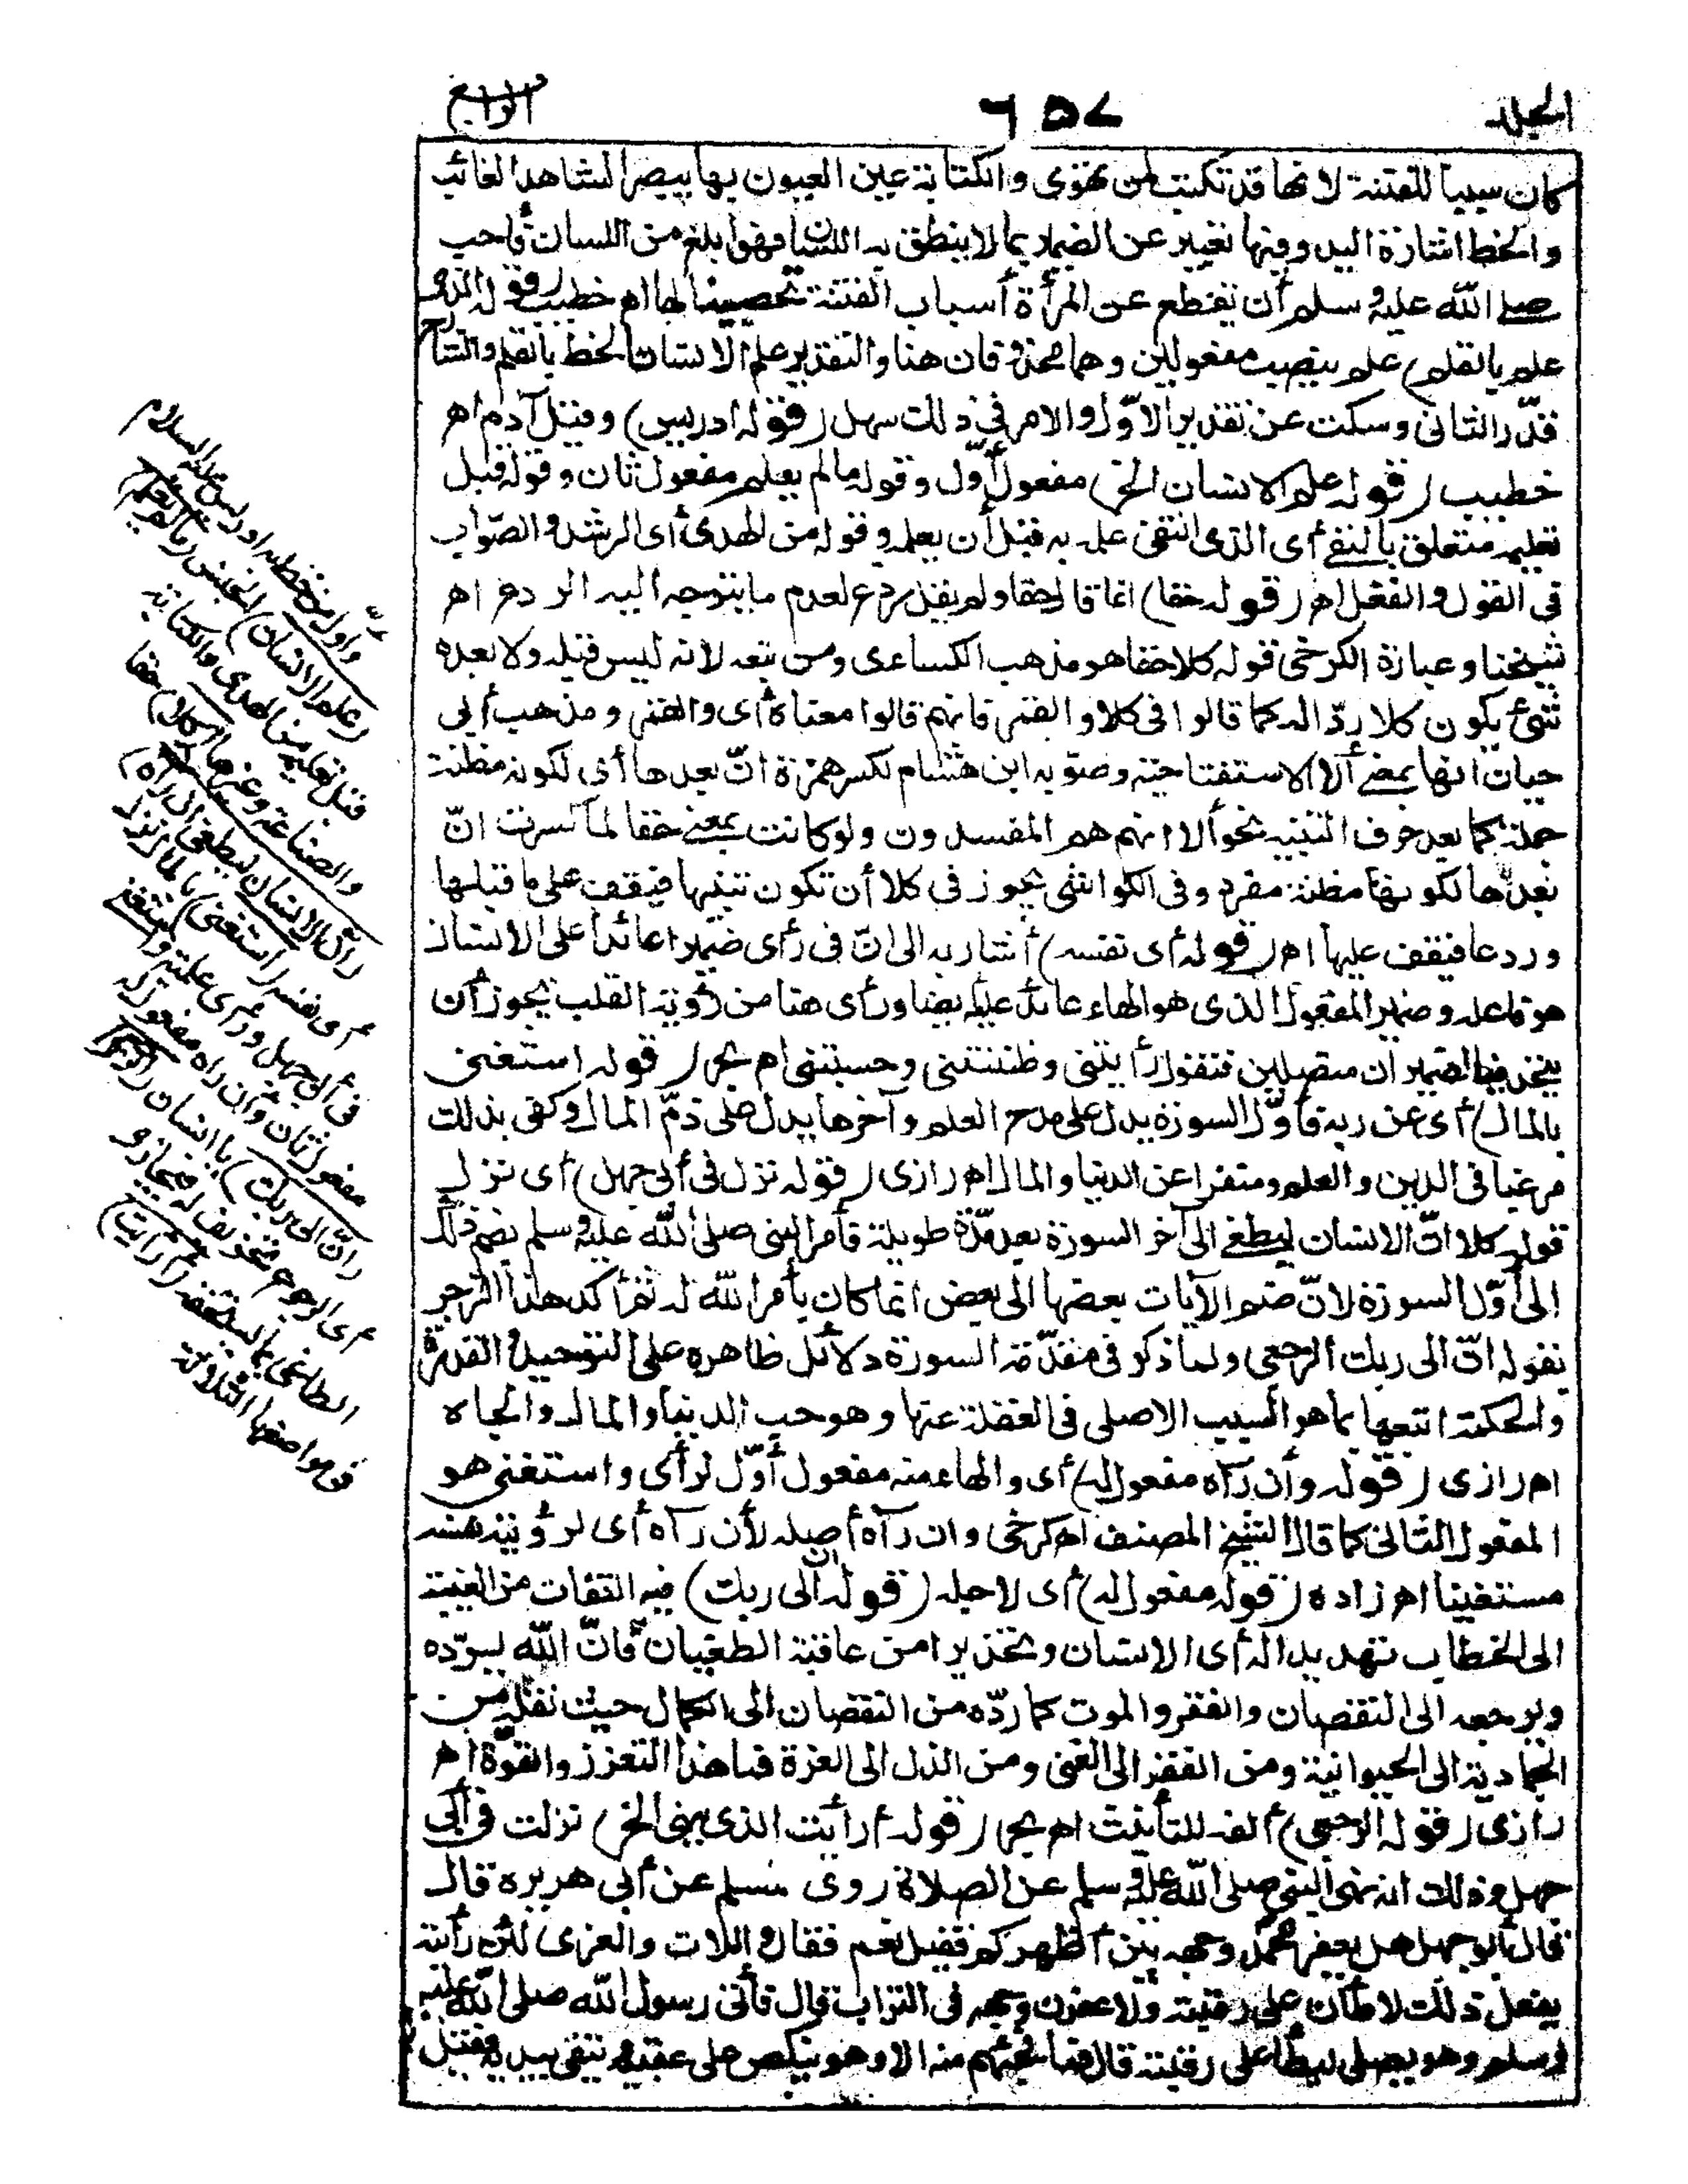 الجلد ٦٥٧ الرابع
كان سببا للفتنة لانها قد تكتب لمن تهوى والكتابة عين العيون بها يبصر الشاهد الغائب
والخط اشارة اليد وفيها تعبير عن الضمير بما لا ينطق به اللسان فهو ابلغ من اللسان فأحب
صلى الله عليه وسلم أن يقطع عن المرأة أسباب الفتنة تحصينا لها اه خطيب (قوله الذى
علم بالقلم) علم ينصب مفعولين وهما محذوفان هنا والتقدير علم الانسان الخط بالقلم والشارح
قدّر الثانى وسكت عن تقدير الاوّل والامر فى ذلك سهل (قوله ادريس) وقيل آدم اه
خطيب (قوله علم الانسان الخ) مفعول أوّل وقوله ما لم يعلم مفعول ثان وقوله قبل
تعليمه متعلق بالنفى أى الذى انتفى علمه به قبل أن يعلمه وقوله من الهدى أى الرشد والصواب
فى القول والفعل اه (قوله حقا) انما قال حقا ولم يقل ردع لعدم ما يتوجه اليه الردع اه
شيخنا وعبارة الكرخى قوله كلا حقا هو مذهب الكساءى ومن تبعه لانه ليس قبله ولا بعده
شئ يكون كلا ردّا له كما قالوا فى كلا والقمر فانهم قالوا معناه أى والقمر ومذهب أبى
حيان انها بمعنى ألا الاستفتاحية وصوّبه ابن هشام لكسر همزة انّ بعدها أى لكونه مظنة
جملة كما بعد حرف التنبيه نحو ألا انهم هم المفسدون ولو كانت بمعنى حقا لما كسرت انّ
بعدها لكونها مظنة مفرد وفى الكواشى يجوز فى كلا أن تكون تنبيها فيقف على ما قبلها
وردعا فيقف عليها اه (قوله أى نفسه) أشار به الى انّ فى رأى ضميرا عائدا على الانسان
هو فاعله وضمير المفعول الذى هو الهاء عائد عليه أيضا ورأى هنا من رؤية القلب يجوز أن
يتحد فيها الضميران متصلين فتقول رأيتنى وظننتنى وحسبتنى اه بحر (قوله استغنى
بالمال) أى عن ربه فأوّل السورة يدل على مدح العلم وآخرها يدل على ذمّ المال وكفى بذلك
مرغبا فى الدين والعلم ومنفرا عن الدنيا والمال اه رازى (قوله نزل فى أبى جهل) أى نزل
قوله كلا انّ الانسان ليطغى الى آخر السورة بعد مدّة طويلة فأمر النبى صلى الله عليه وسلم بضم ذلك
الى أوّل السورة لانّ ضم الآيات بعضها الى بعض انما كان بأمر الله له ثم أكد هذا الزجر
بقوله انّ الى ربك الرجعى ولما ذكر فى مقدّمة السورة دلائل ظاهرة على التوحيد والقدرة
والحكمة اتبعها بما هو السبب الاصلى فى الغفلة عنها وهو حب الدنيا والمال والجاه
اه رازى (قوله وأن رآه مفعول له) أى والهاء منه مفعول أوّل لرأى واستغنى هو
المفعول الثانى كما قال الشيخ المصنف اه كرخى وان رآه أصله لأن رآه أى لرؤية نفسه
مستغنيا اه زاده (قوله مفعول له) أى لاجله (قوله ان الى ربك) فيه التفات من الغيبة
الى الخطاب تهديدا له أى الانسان وتحذيرا من عاقبة الطغيان فانّ الله يردّه
ويرجعه الى النقصان والفقر والموت كما ردّه من النقصان الى الكمال حيث نقله من
الجمادية الى الحيوانية ومن الفقر الى الغنى ومن الذل الى العزة فما هذا التعزز والقوّة اه
رازى (قوله الرجعى) ألفه للتأنيث اه بحر (قوله أرأيت الذى ينهى الخ) نزلت فى أبى
جهل وذلك انه نهى النبى صلى الله عليه وسلم عن الصلاة روى مسلم عن أبى هريرة قال
قال أبو جهل هل يعفر محمد وجهه بين أظهركم فقيل نعم فقال واللات والعزى لئن رأيته
يفعل ذلك لاطأن على رقبته ولاعفرن وجهه فى التراب قال فأتى رسول الله صلى الله عليه
وسلم وهو يصلى ليطأ على رقبته قال فما فجئهم منه الا وهو ينكص على عقبيه ويتقى بيديه فقيل
وأول من خط به ادريس عليه السلام
(علم الانسان) الجنس (ما لم يعلم)
قبل تعليمه من الهدى والكتابة
والصناعة وغيرها (كلا) حقا
(انّ الانسان ليطغى أن رآه)
أى نفسه (استغنى) بالمال نزل
فى أبى جهل ورأى علمية واستغنى
مفعول ثان وأن رآه مفعول له
(انّ الى ربك) يا انسان (الرجعى)
أى الرجوع تخويف له فيجازى
الطاغى بما يستحقه (أرأيت)
فى مواضعها الثلاثة